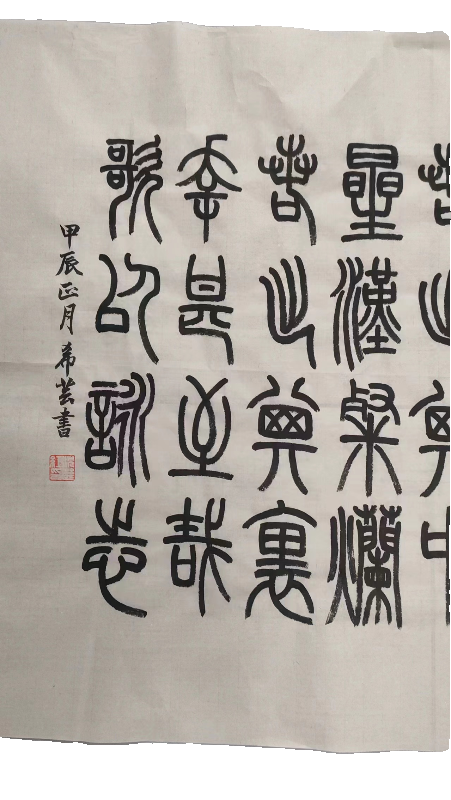 若出其中
星漢粲爛
若出其裏
幸甚至哉
歌以詠志
甲辰正月 希芸書